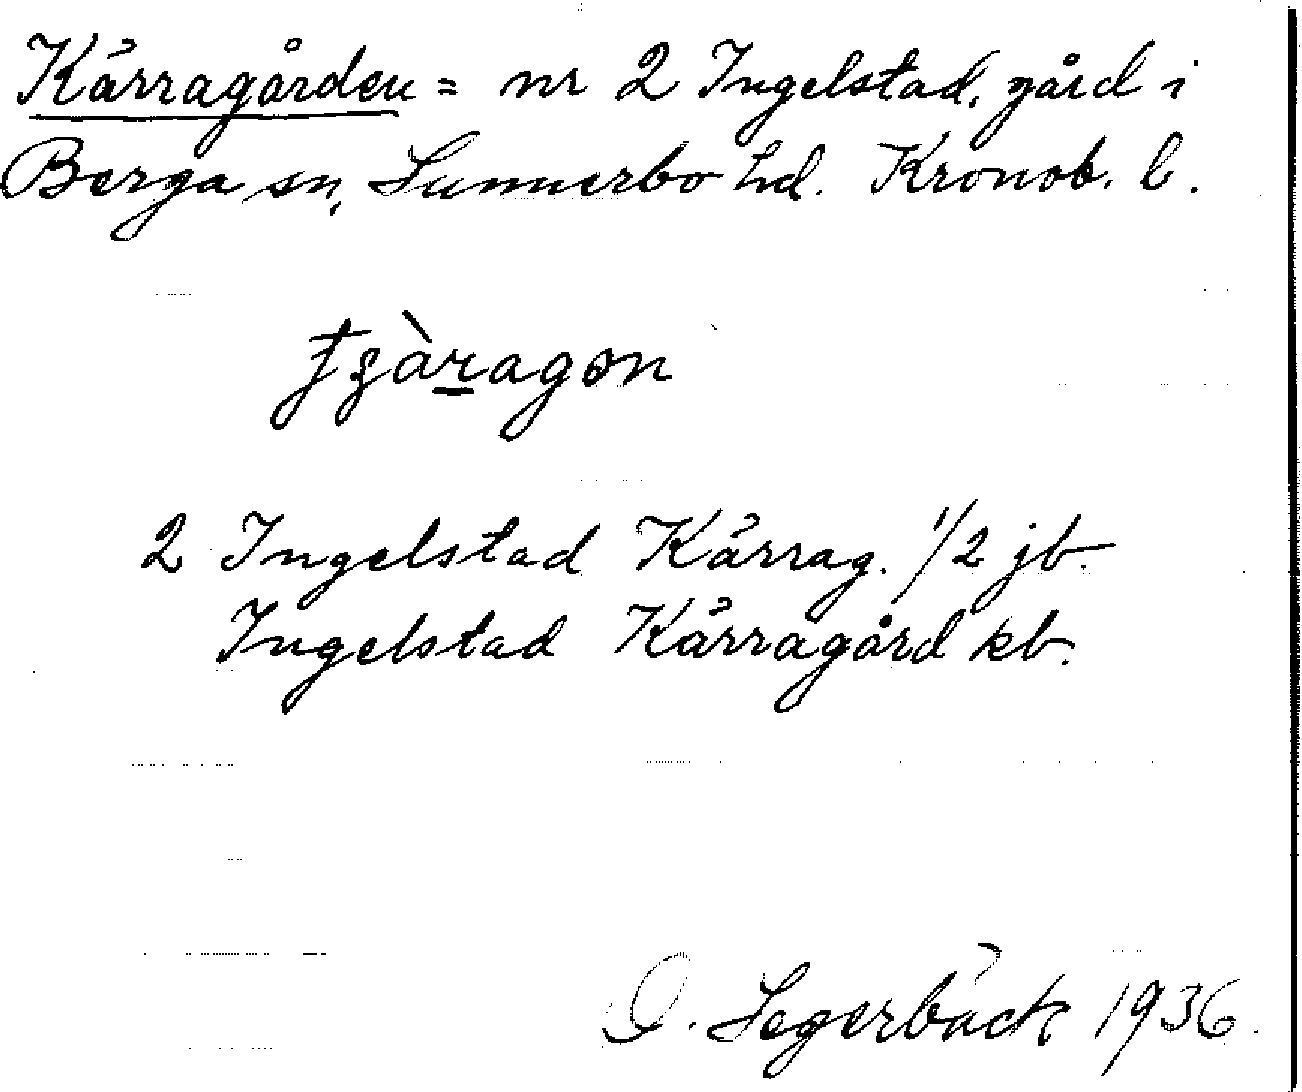 Kärragården = nr 2 Ingelstad, gård i
Berga sn, Sunnerbo hd. Kronob. l.
tʂàragɔn
2 Ingelstad Kärrag. 1/2 jb.
Ingelstad Kärragård kb.
O. Segerbäck 1936.